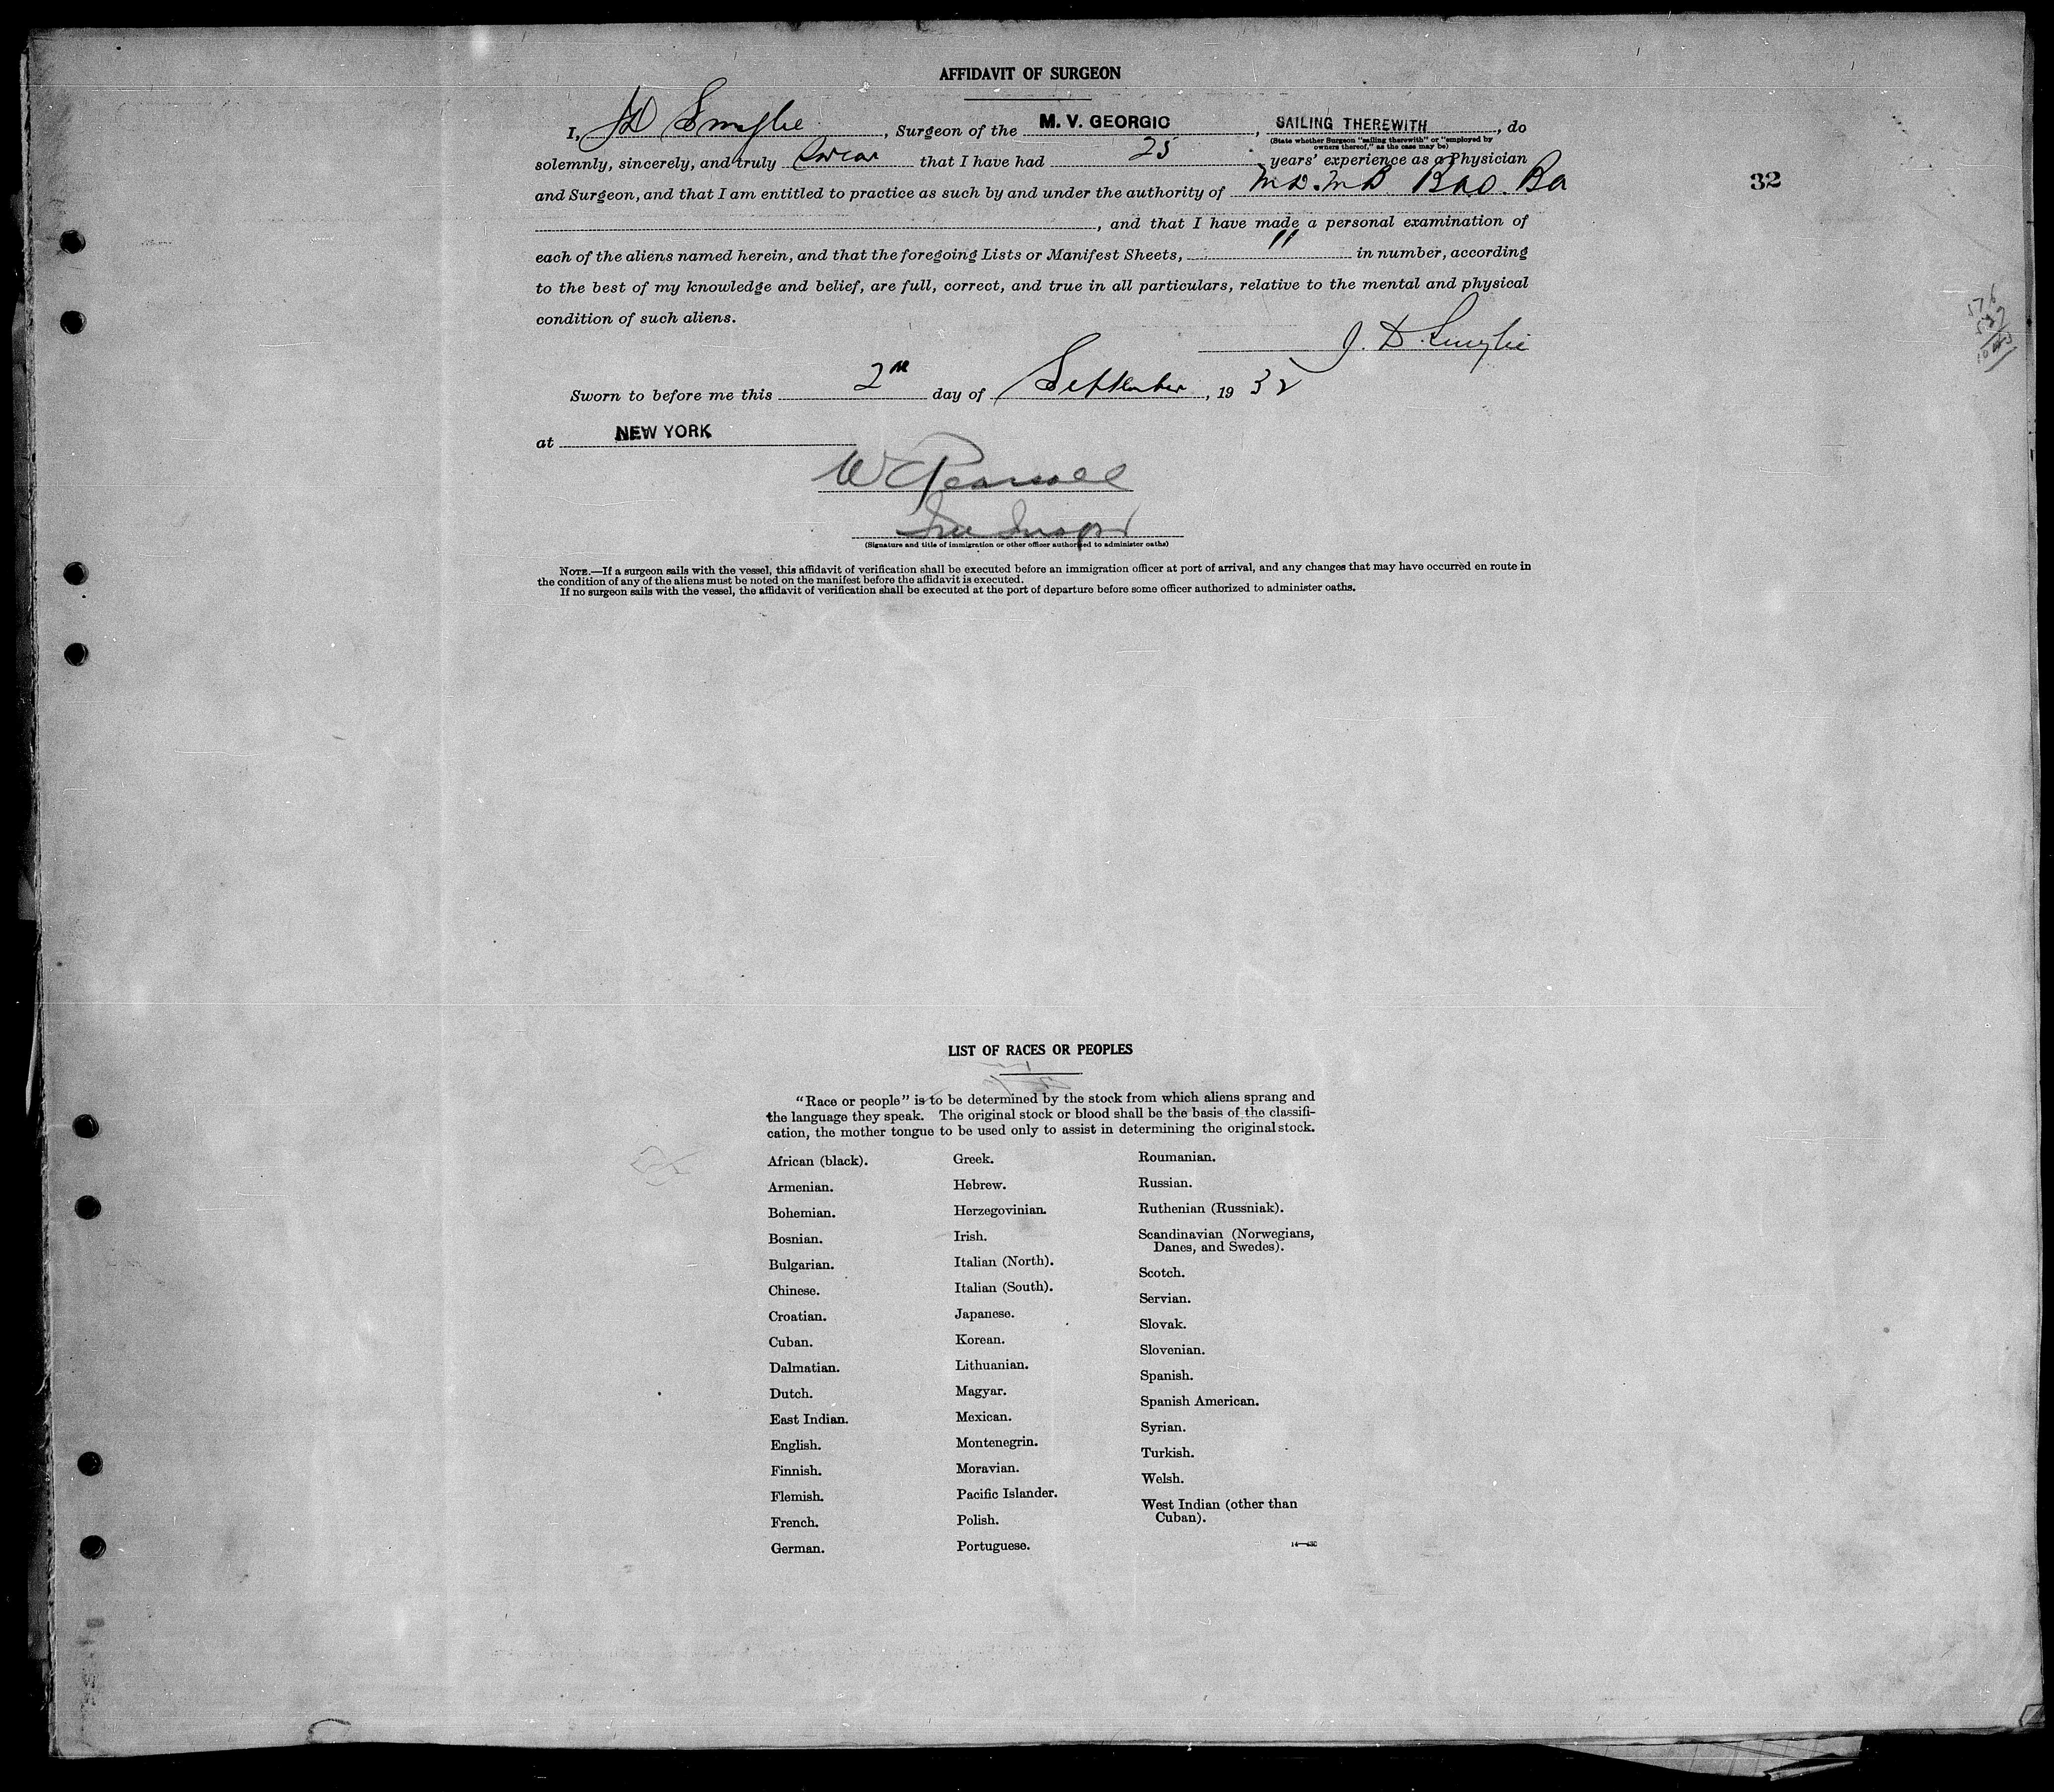 AFFIDAVIT OF SURGEON
I, JD Smylie, Surgeon of the M. V. GEORGIC, SAILING THEREWITH, do
(State whether Surgeon "sailing therewith" or "employed by
owners thereof," as the case may be)
solemnly, sincerely, and truly swear that I have had 25 years' experience as a Physician
and Surgeon, and that I am entitled to practice as such by and under the authority of M.D. M B. BAO. Ba
, and that I have made a personal examination of
each of the aliens named herein, and that the foregoing Lists or Manifest Sheets, 11 in number, according
to the best of my knowledge and belief, are full, correct, and true in all particulars, relative to the mental and physical
condition of such aliens.
J. D. Smylie
Sworn to before me this 2nd day of September, 1932
at NEW YORK
W Pearsall
(Signature and title of immigration or other officer authorized to administer oaths)
NOTE.—If a surgeon sails with the vessel, this affidavit of verification shall be executed before an immigration officer at port of arrival, and any changes that may have occurred en route in
the condition of any of the aliens must be noted on the manifest before the affidavit is executed.
If no surgeon sails with the vessel, the affidavit of verification shall be executed at the port of departure before some officer authorized to administer oaths.
32
LIST OF RACES OR PEOPLES
"Race or people" is to be determined by the stock from which aliens sprang and
the language they speak. The original stock or blood shall be the basis of the classifi-
cation, the mother tongue to be used only to assist in determining the original stock.
African (black).
Armenian.
Bohemian.
Bosnian.
Bulgarian.
Chinese.
Croatian.
Cuban.
Dalmatian.
Dutch.
East Indian.
English.
Finnish.
Flemish.
French.
German.
Greek.
Hebrew.
Herzegovinian.
Irish.
Italian (North).
Italian (South).
Japanese.
Korean.
Lithuanian.
Magyar.
Mexican.
Montenegrin.
Moravian.
Pacific Islander.
Polish.
Portuguese.
Roumanian.
Russian.
Ruthenian (Russniak).
Scandinavian (Norwegians,
Danes, and Swedes).
Scotch.
Servian.
Slovak.
Slovenian.
Spanish.
Spanish American.
Syrian.
Turkish.
Welsh.
West Indian (other than
Cuban).